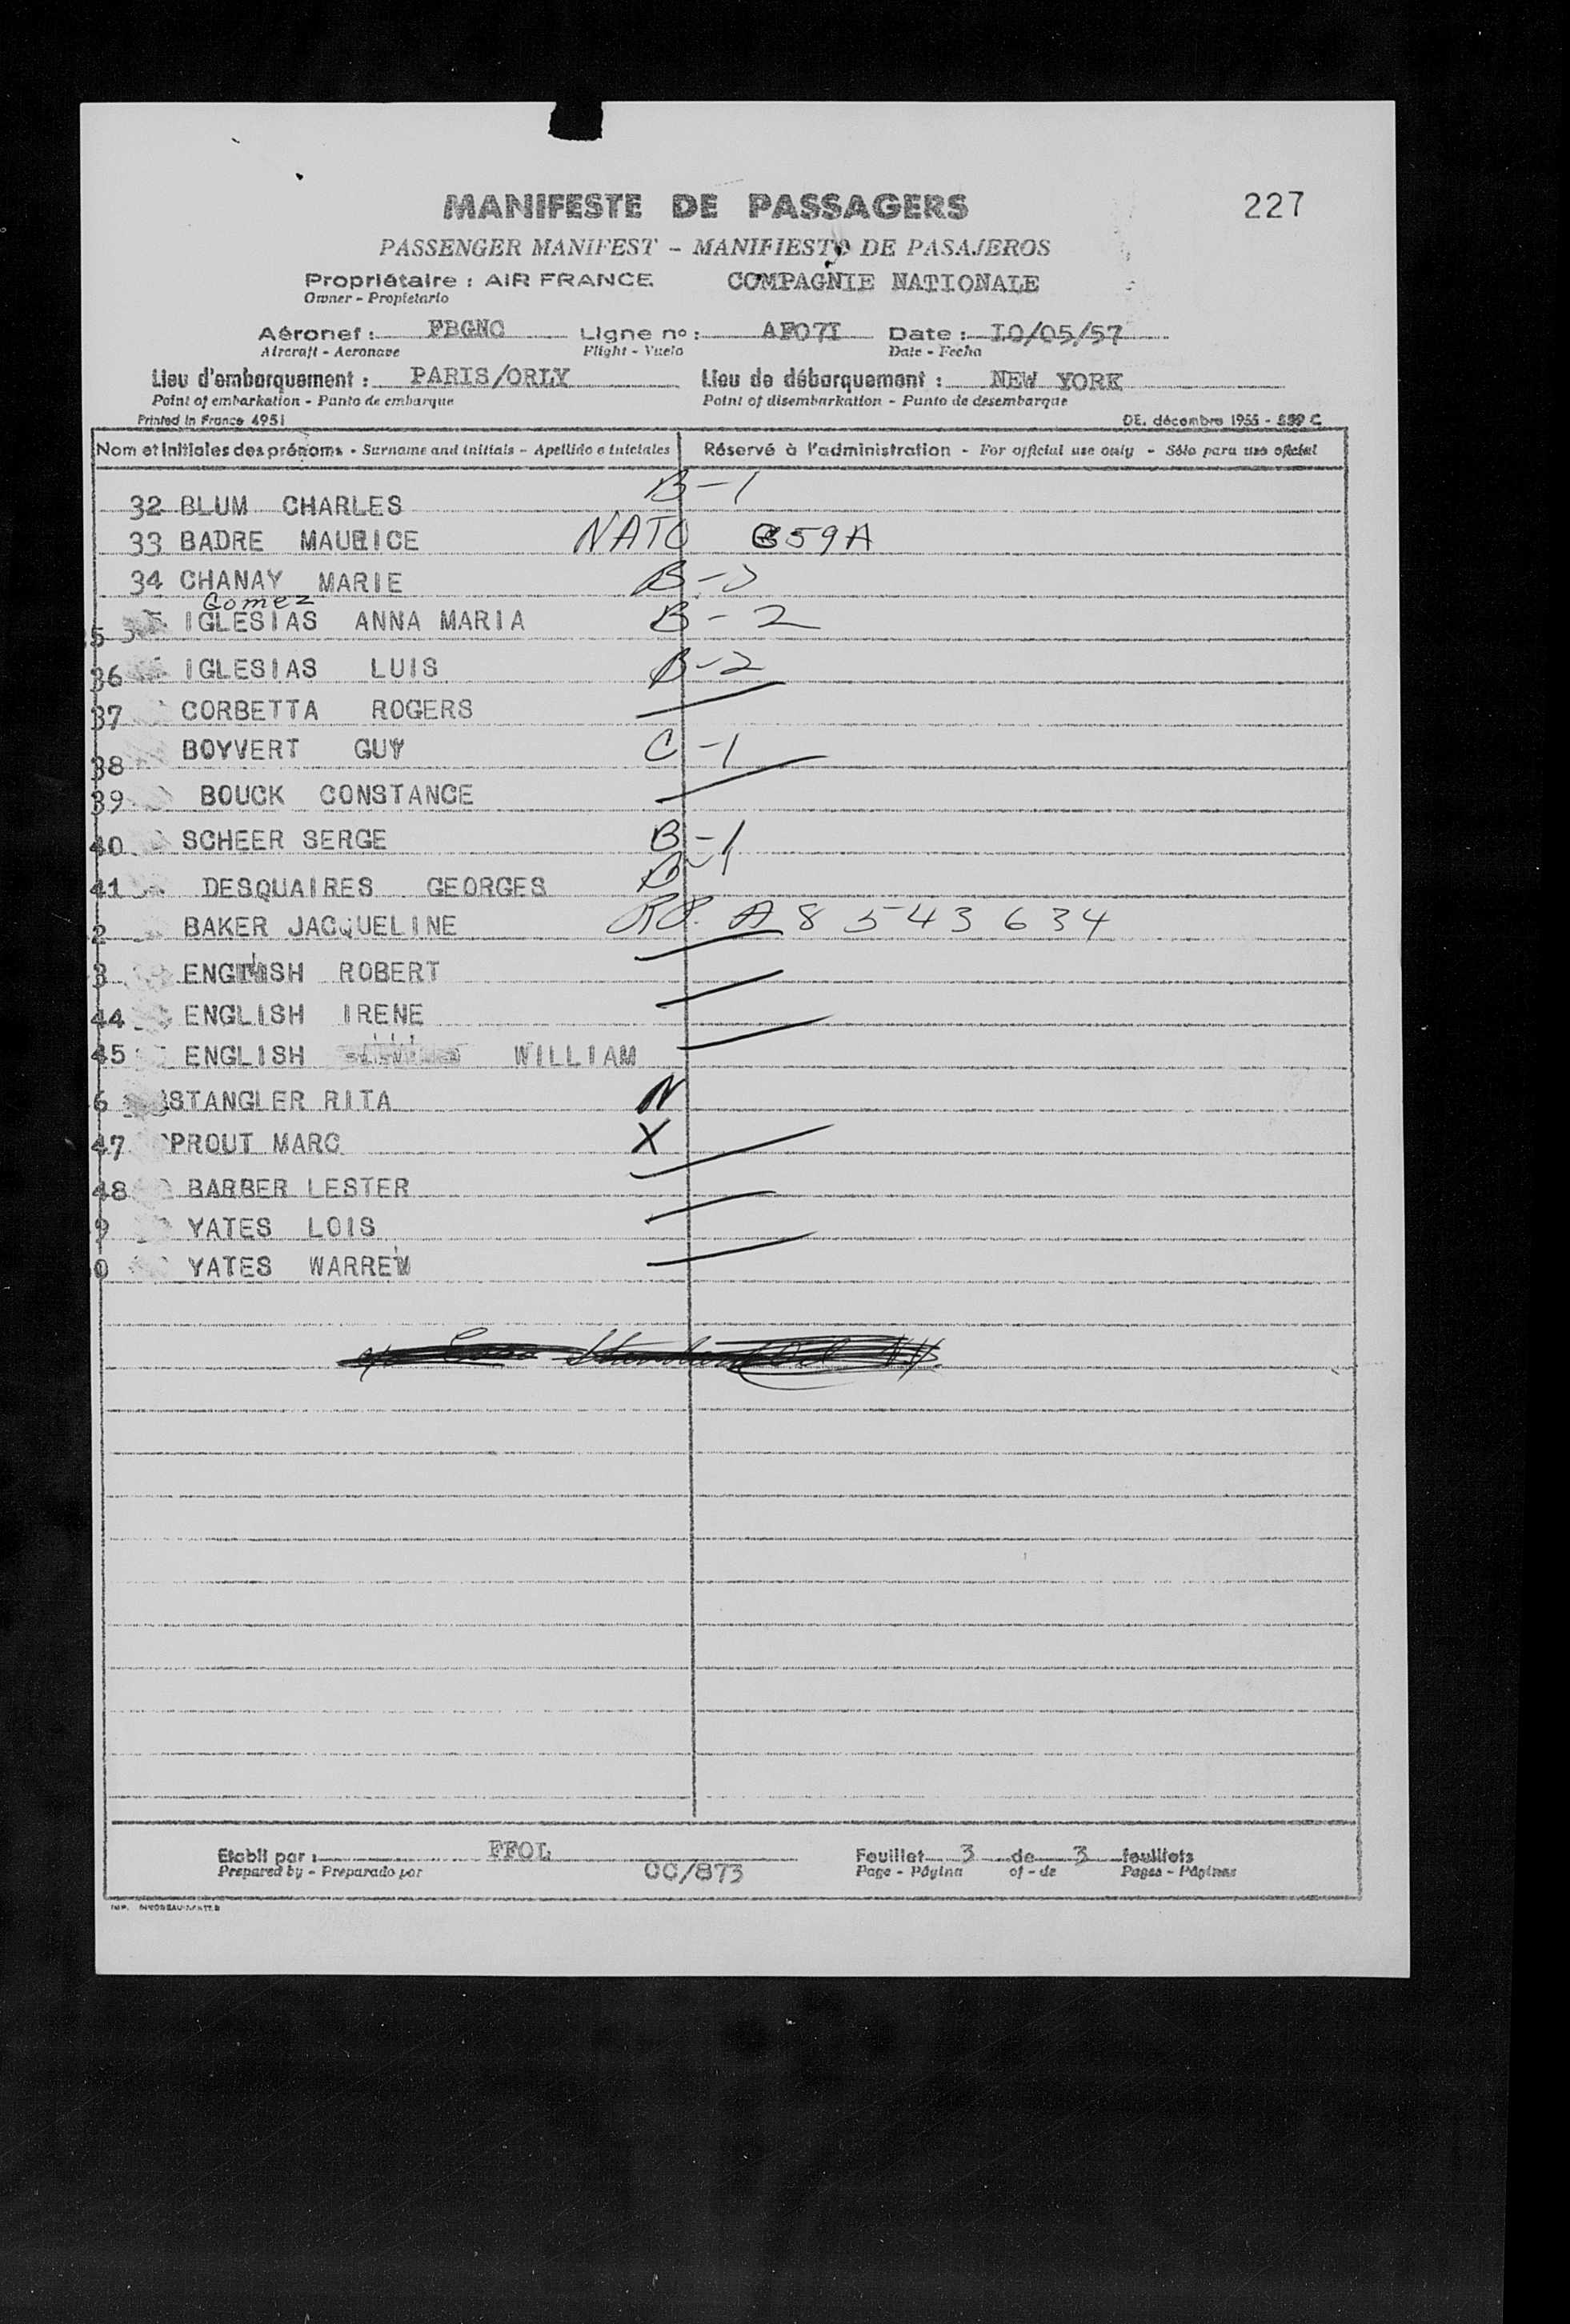 MANIFESTE DE PASSAGERS
227
PASSENGER MANIFEST - MANIFIESTO DE PASAJEROS
Propriétaire : AIR FRANCE. COMPAGNIE NATIONALE
Owner - Propietario
Aéronef : FBGNO Ligne nº : AF07I Date : I0/05/57
Aircraft - Aeronave Flight - Vuelo Date - Fecha
Lieu d'embarquement : PARIS/ORLY Lieu de débarquement : NEW YORK
Point of embarkation - Punto de embarque Point of disembarkation - Punto de desembarque
Printed in France 4951 DE. décembre 1955 - C
Nom et initiales des prénoms - Surname and initials - Apellido e iniciales Réservé à l'administration - For official use only - Sólo para uso oficial
32 BLUM CHARLES B-1
33 BADRE MAURICE NATO 359A
34 CHANAY MARIE B-
Gomez
5 IGLESIAS ANNA MARIA B-2
36 IGLESIAS LUIS B-2
37 CORBETTA ROGERS
38 BOYVERT GUY C-1
39 BOUCK CONSTANCE
40 SCHEER SERGE B-1
41 DESQUAIRES GEORGES B-1
2 BAKER JACQUELINE A8543634
3 ENGLISH ROBERT
44 ENGLISH IRENE
45 ENGLISH WILLIAM
6 STANGLER RITA N
47 PROUT MARC X
48 BARBER LESTER
9 YATES LOIS
0 YATES WARREN
Etabli par : FFOL Feuillet 3 de 3 feuillets
Prepared by - Preparado por CC/873 Page - Página of - de Pages - Páginas